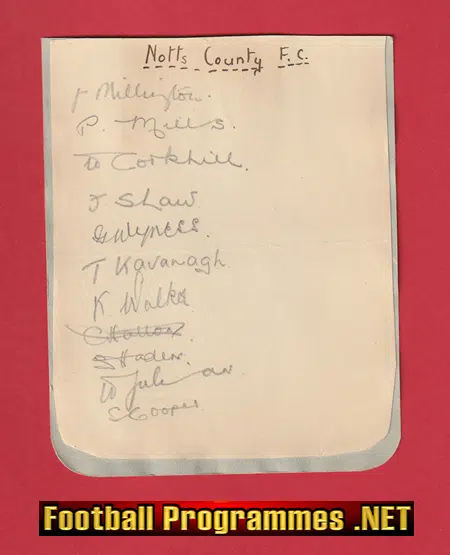 Notts County F.C.
Millington.
P. Mills.
W Corkhill.
J Shaw
T Kavanagh
K Walker
S Hadew
W
S Cooper
Football Programmes .NET